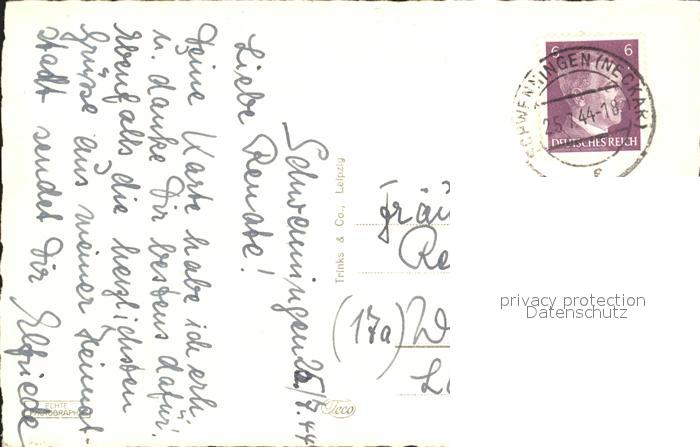 Schwenningen 25/7.44
Liebe Renate!
Deine Karte habe ich erh.
u. danke Dir bestens dafür!
Ebenfalls die herzlichsten
Grüße aus meiner Heimat-
stadt sendet Dir
Elfriede
Trinks & Co., Leipzig
ECHTE
PHOTOGRAPHIE
Teco
6 6
DEUTSCHES REICH
SCHWENNINGEN (NECKAR)
25.7.44-18
Fräu
Re
(17a) W
privacy protection
Datenschutz